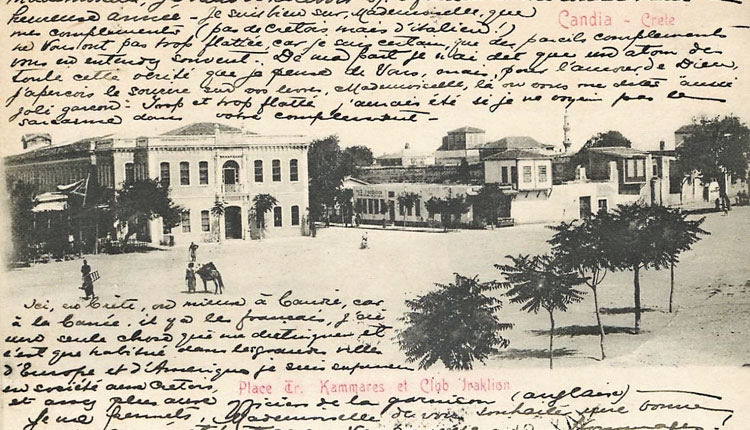 heureuse année - Je suis bien sûr, Mademoiselle, que
Candia - Crete
mes compliments (pas de Crétois mais d'italien!)
ne vous ont pas trop flattée car je suis certain, que des pareils compliments
vous en entendez souvent. De ma part je n'ai dit que un atom de
toute cette vérité que je pense de Vous, mais, pour l'amour de Dieu,
j'aperçois le sourire sur vos levres, Mademoiselle, là où vous me dites "aussi
joli garçon" Trop et trop flatté j'aurais été si je ne voyais pas le
sarcasme dans votre complement -
Ici, en Crète, ou mieux à Candie, car
à la Canée, il y a les français, j'ai
une seule chose que me distingue et
c'est que habitué dans les grandes villes
d'Europe et d'Amérique je suis
en société aux Crétois
Place Tr. Kammares et Club Iraklion
et assez plus avec de la garnison (anglaise)
Je me permets, Mademoiselle de vous souhaiter une bonne